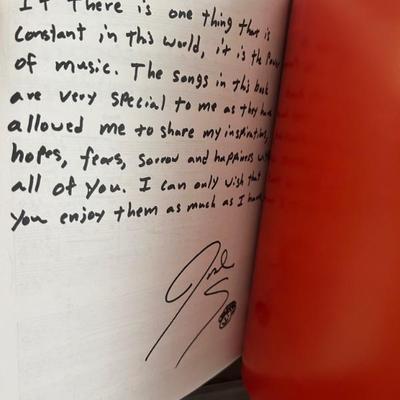 If there is one thing that is
constant in this world, it is the Power
of music. The songs in this book
are very special to me as they have
allowed me to share my inspirations,
hopes, fears, sorrow and happiness with
all of you. I can only wish that
you enjoy them as much as I have